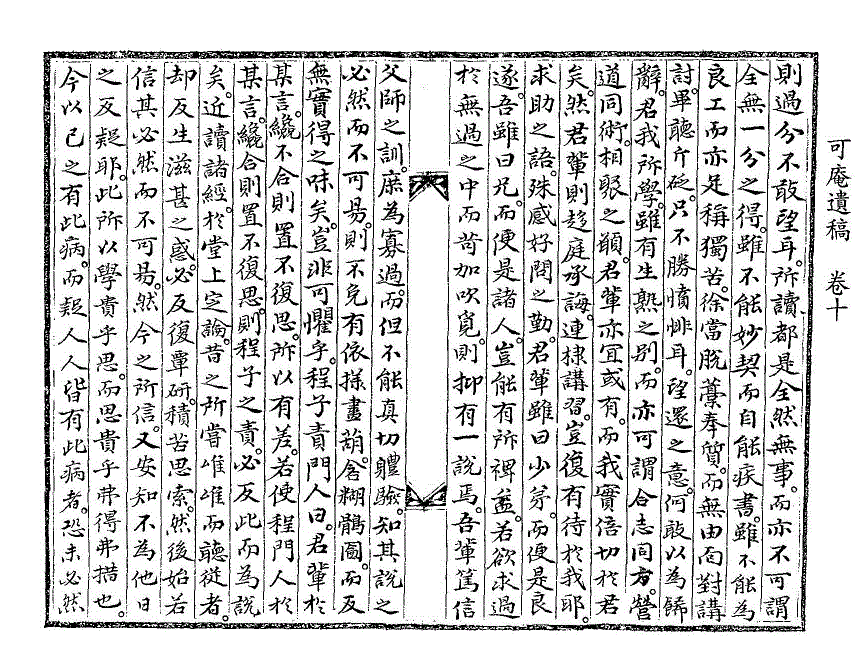 可庵遺稿 卷十
則過分不敢望耳。所讀都是全然無事。而亦不可謂
全無一分之得。雖不能妙契而自能疾書。雖不能為
良工而亦足稱獨苦。徐當脫藁奉質。而無由面對講
討。畢聽斤砭。只不勝憤悱耳。望還之意。何敢以為歸
辭。君我所學。雖有生熟之別。而亦可謂合志同方。營
道同術。相眼之願。君輩亦宜或有。而我實倍切於君
矣。然君輩則趍庭承誨。連棣講習。豈復有待於我耶。
求助之語。殊感好問之勤。君輩雖曰少弟。而便是良
遂。吾雖曰兄。而便是諸人。豈能有所裨益。若欲求過
於無過之中而苟加吹覓。則抑有一說焉。吾輩篤信
父師之訓。庶為寡過。而但不能真切軆驗。知其說之
必然而不可易。則不免有依㨾畫葫。含糊鶻圇。而反
無實得之味矣。豈非可懼乎。程子責門人曰。君輩於
某言。纔不合則置不復思。所以有差。若使程門人於
某言。纔合則置不復思。則程子之責。必反此而為說
矣。近讀諸經。於堂上定論。昔之所嘗唯唯而聽從者。
却反生滋甚之惑。必反復覃研。積苦思索。然後始若
信其必然而不可易。然今之所信。又安知不為他日
之反疑耶。此所以學貴乎思。而思貴乎弗得弗措也。
今以己之有此病。而疑人人皆有此病者。恐未必然